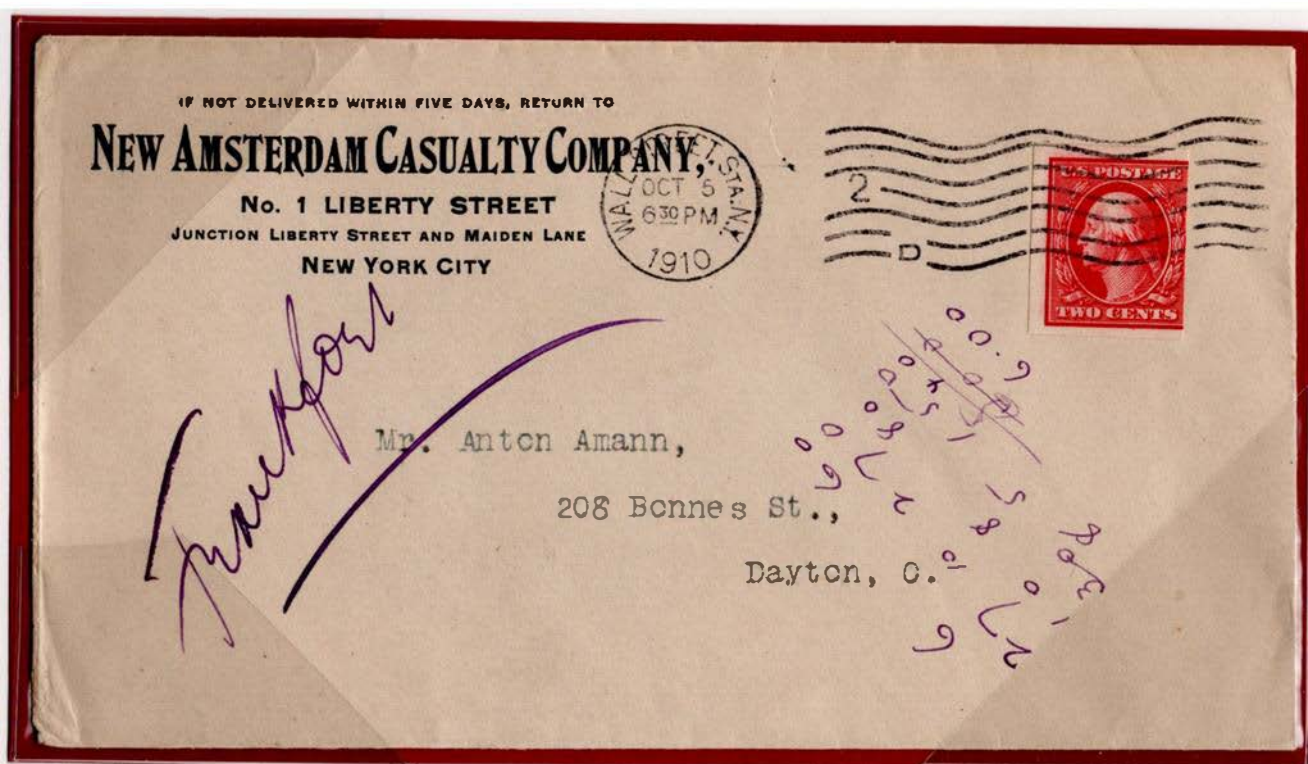 IF NOT DELIVERED WITHIN FIVE DAYS, RETURN TO
NEW AMSTERDAM CASUALTY COMPANY,
No. 1 LIBERTY STREET
JUNCTION LIBERTY STREET AND MAIDEN LANE
NEW YORK CITY
WALL STREET. STA. N.Y.
OCT 5
6 30 PM
1910
2
D
U.S. POSTAGE
TWO CENTS
Frankfort
Mr. Anton Amann,
208 Bonnes St.,
Dayton, O.